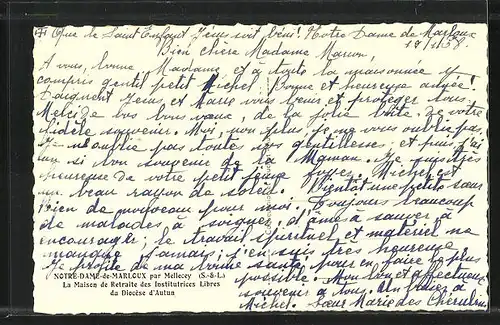 Que le Saint Enfant Jésus soit béni! Notre Dame de Marloux
Bien chère Madame Marion,
A vous, bonne Madame, et à toute la maisonnée y
compris gentil petit Michel, Bonne et heureuse année!
Daignent Jésus et Marie vous bénir et protéger tous.
Merci de vos bons vœux, de la jolie boîte, de votre
fidèle souvenir. Moi, non plus, je ne vous oublie pas,
Je n'oublie pas toutes vos gentillesses; et puis j'ai
un si bon souvenir de la Maman. Je suis
heureuse de votre petit jeune foyer, Michel est
un beau rayon de soleil. Bientôt une petite sœur
Rien de nouveau pour moi. Toujours beaucoup
de malades à soigner, d'âmes à sauver, à
encourager; le travail spirituel et matériel ne
manque jamais; j'en suis très heureuse
Je profite de ma bonne santé pour en faire le plus
possible. Mon bon et affectueux
souvenir à tous. Un baiser à
Michel. Sœur Marie des Chérubins
NOTRE-DAME-de-MARLOUX par Mellecey (S.-&-L.)
La Maison de Retraite des Institutrices Libres
du Diocèse d'Autun